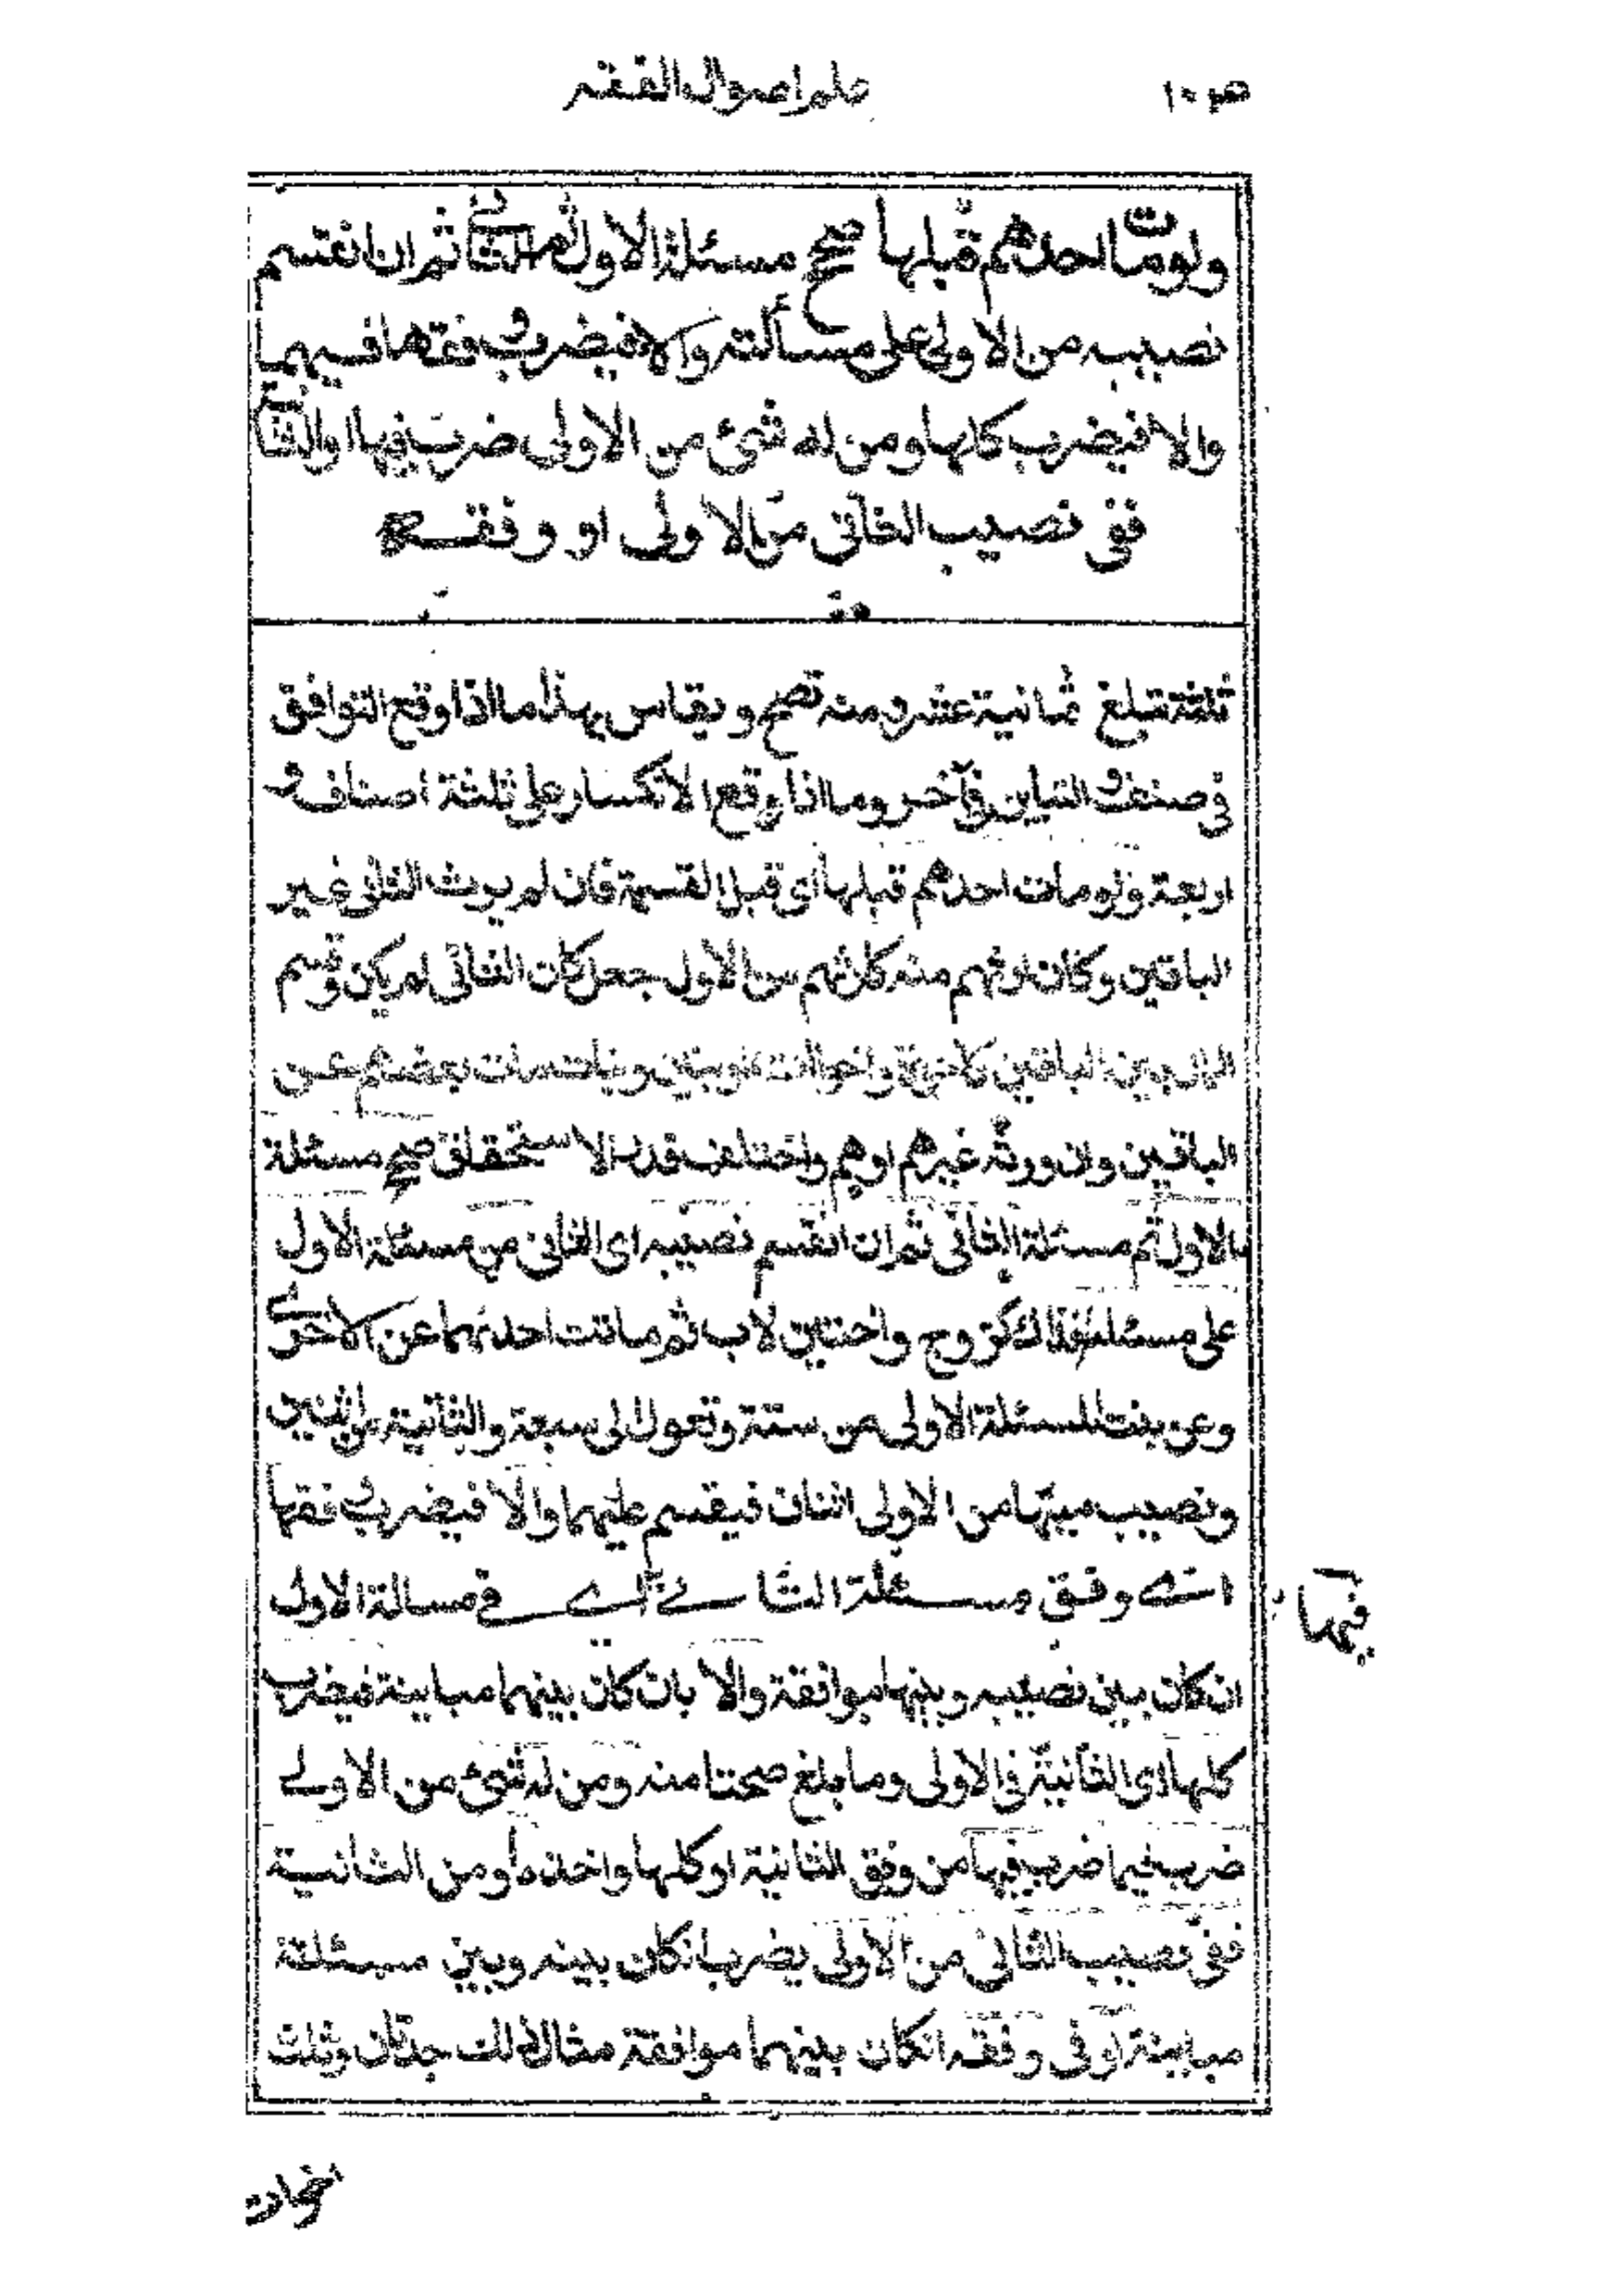 علم اصوال الفقه
ولو مات احدهم قبلها صحح مسئلة الاول ثم الثانے ثم ان انقسم
نصيبه من الاولى على مسألته والا فيضرب وفقها فيها
والا فيضرب كلها ومن له شئ من الاولى ضرب فيها او الثانية
ففى نصيب الثانى من الاولى او وفقه
ثلثة تبلغ ثمانية عشر ومنه تصح ويقاس بهذا ما اذا وقع التوافق
فى صنف والتباين فى آخر وما اذا وقع الانكسار على ثلثة اصناف و
اربعة ولو مات احدهم قبلها اى قبل القسمة فان لم يرث الثانى غير
الباقين وكان ارثهم منه كارثهم من الاول جعل كان الثانى لم يكن وقسم
المال بين الباقين كاخوة واخوات وبنين وبنات مات بعضهم عن
الباقين وان ورثه غيرهم او هم واختلف قدر الاستحقاق صحح مسئلة
الاول ثم مسئلة الثانى ثم ان انقسم نصيبه اى الثانى من مسئلة الاول
على مسئلته فذاك كزوج واختين لاب ثم ماتت احدىهما عن الاخرے
وعن بنت المسئلة الاولى من ستة وتعول الى سبعة والثانية من اثنين
ونصيب ميتها من الاولى اثنان فيقسم عليهما والا فيضرب وفقها
اے وفق مسئلة الثانے فيها اے فے مسالة الاول
ان كان بين نصيبه وبينها موافقة والا بان كان بينهما مباينة فيضرب
كلها اى الثانية فى الاولى وما بلغ صحتا منه ومن له شئ من الاولے
ضرب فيما ضرب فيها من وفق الثانية او كلها واخذه او من الثانية
ففى نصيب الثانى من الاولى يضرب ان كان بينه وبين مسئلته
مباينة او فى وفقه ان كان بينهما موافقة مثال ذلك جدتان وثلث
اخوات